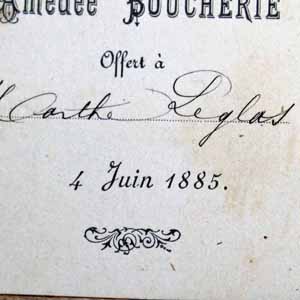 Amédée BOUCHERIE
Offert à
Marthe Leglas
4 Juin 1885.